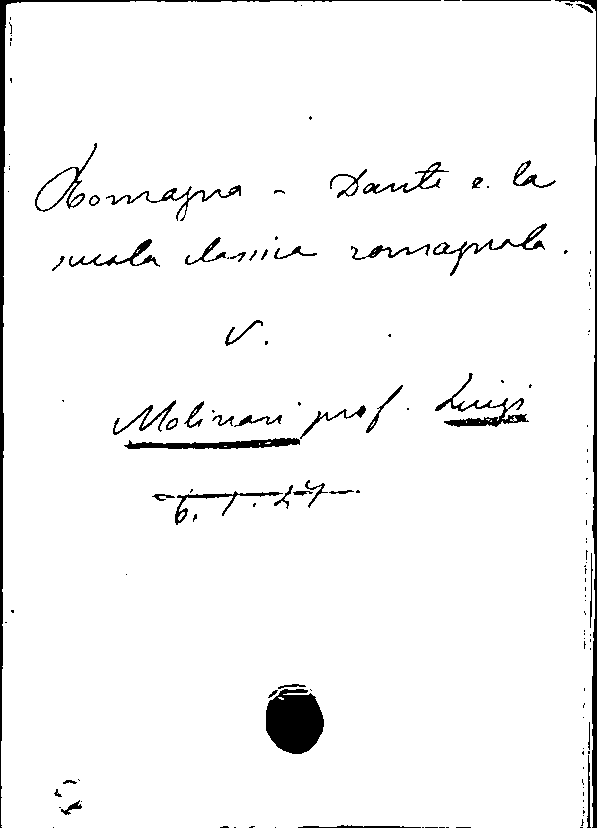 Romagna - Dante e la
scuola classica romagnola.
V.
Molinari prof. Luigi
6. 1. 27